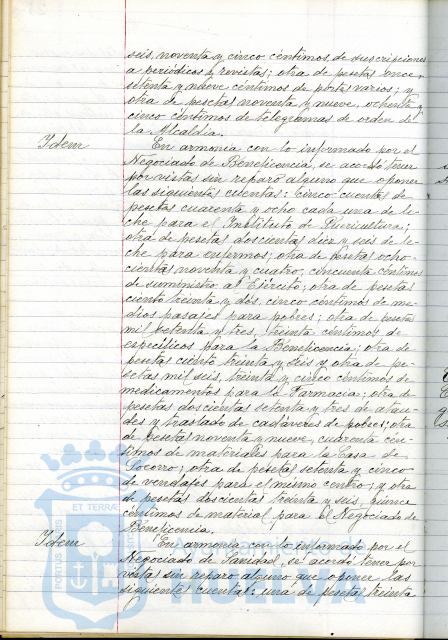 seis, noventa y cinco céntimos de suscripciones
a periódicos y revistas; otra de pesetas once,
setenta y nueve céntimos de portes varios; y
otra de pesetas noventa y nueve, ochenta y
cinco céntimos de telegramas de orden de
la Alcaldía.
Idem
En armonía con lo informado por el
Negociado de Beneficencia, se acordó tener
por vistas sin reparo alguno que oponer
las siguientes cuentas: Cinco cuentas de
pesetas cuarenta y ocho cada una de le-
che para el Instituto de Puericultura;
otra de pesetas doscientas diez y seis de le-
che para enfermos; otra de pesetas ocho-
cientas noventa y cuatro, cincuenta céntimos
de suministro al Ejército; otra de pesetas
ciento treinta y dos, cinco céntimos de me-
dios pasajes para pobres; otra de pesetas
mil setenta y tres, treinta céntimos de
específicos para la Beneficencia; otra de
pesetas ciento treinta y seis y otra de pe-
setas mil seis, treinta y cinco céntimos de
medicamentos para la Farmacia; otra de
pesetas doscientas setenta y tres de ataú-
des y traslado de cadáveres de pobres; otra
de pesetas noventa y nueve, cuarenta cén-
timos de materiales para la Casa de
Socorro; otra de pesetas setenta y cinco
de vendajes para el mismo centro; y otra
de pesetas doscientas treinta y seis, quince
céntimos de material para el Negociado de
Beneficencia.
Idem
En armonía con lo informado por el
Negociado de Sanidad, se acordó tener por
vistas sin reparo alguno que oponer las
siguientes cuentas: una de pesetas treinta